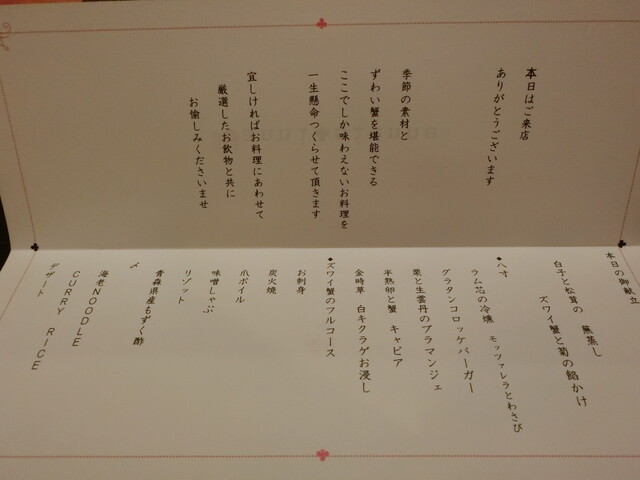 本日はご来店
ありがとうございます
季節の素材と
ずわい蟹を堪能できる
ここでしか味わえないお料理を
一生懸命つくらせて頂きます
宜しければお料理にあわせて
厳選したお飲物と共に
お愉しみくださいませ
本日の御献立
白子と松茸の 蕪蒸し
ズワイ蟹と菊の餡かけ
◆八寸
ラム芯の冷燻 モッツァレラとわさび
グラタンコロッケバーガー
栗と生雲丹のブラマンジェ
半熟卵と蟹 キャビア
金時草 白キクラゲお浸し
◆ズワイ蟹のフルコース
お刺身
炭火焼
爪ボイル
味噌しゃぶ
リゾット
青森県産もずく酢
〆
海老NOODLE
CURRY RICE
デザート